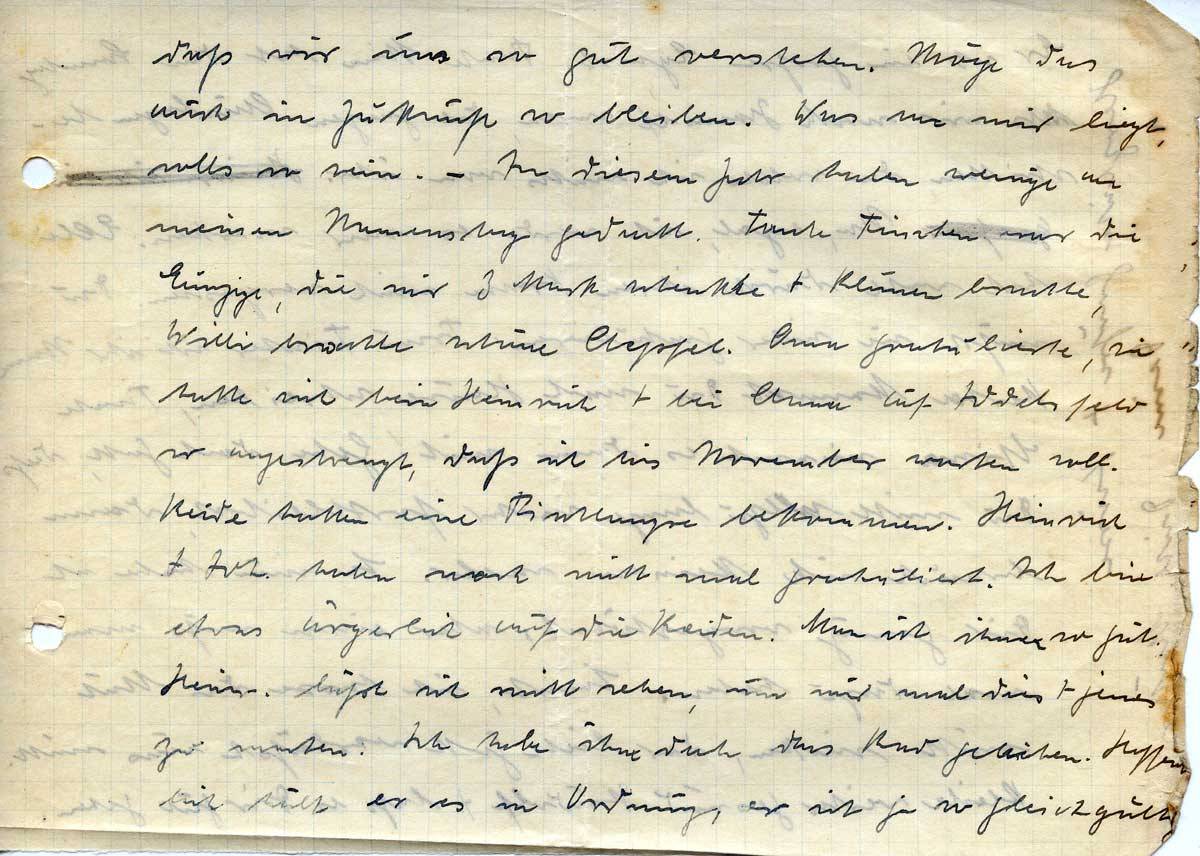 daß wir uns so gut verstehen. Möge das
auch in Zukunft so bleiben. Was an mir liegt,
solls so sein. – In diesem Jahr haben wenige an
meinen Namenstag gedacht. Tante Finchen war die
Einzige, die mir 3 Mark schenkte + Blumen brachte,
Willi brachte schöne Aepfel. Oma gratulierte, sie
hatte sich beim Heinrich + bei Anna auf
so angestrengt, daß ich bis November warten soll.
Beide hatten eine bekommen. Heinrich
+ haben noch nicht mal gratuliert. Ich bin
etwas ärgerlich auf die Beiden. Man ist ihnen so gut.
Hein. läßt sich nicht sehen, um mir mal dies + jenes
zu machen. Ich habe ihm doch das Rad geliehen. Hoffent
lich hält er es in Ordnung, er ist ja so gleichgültig